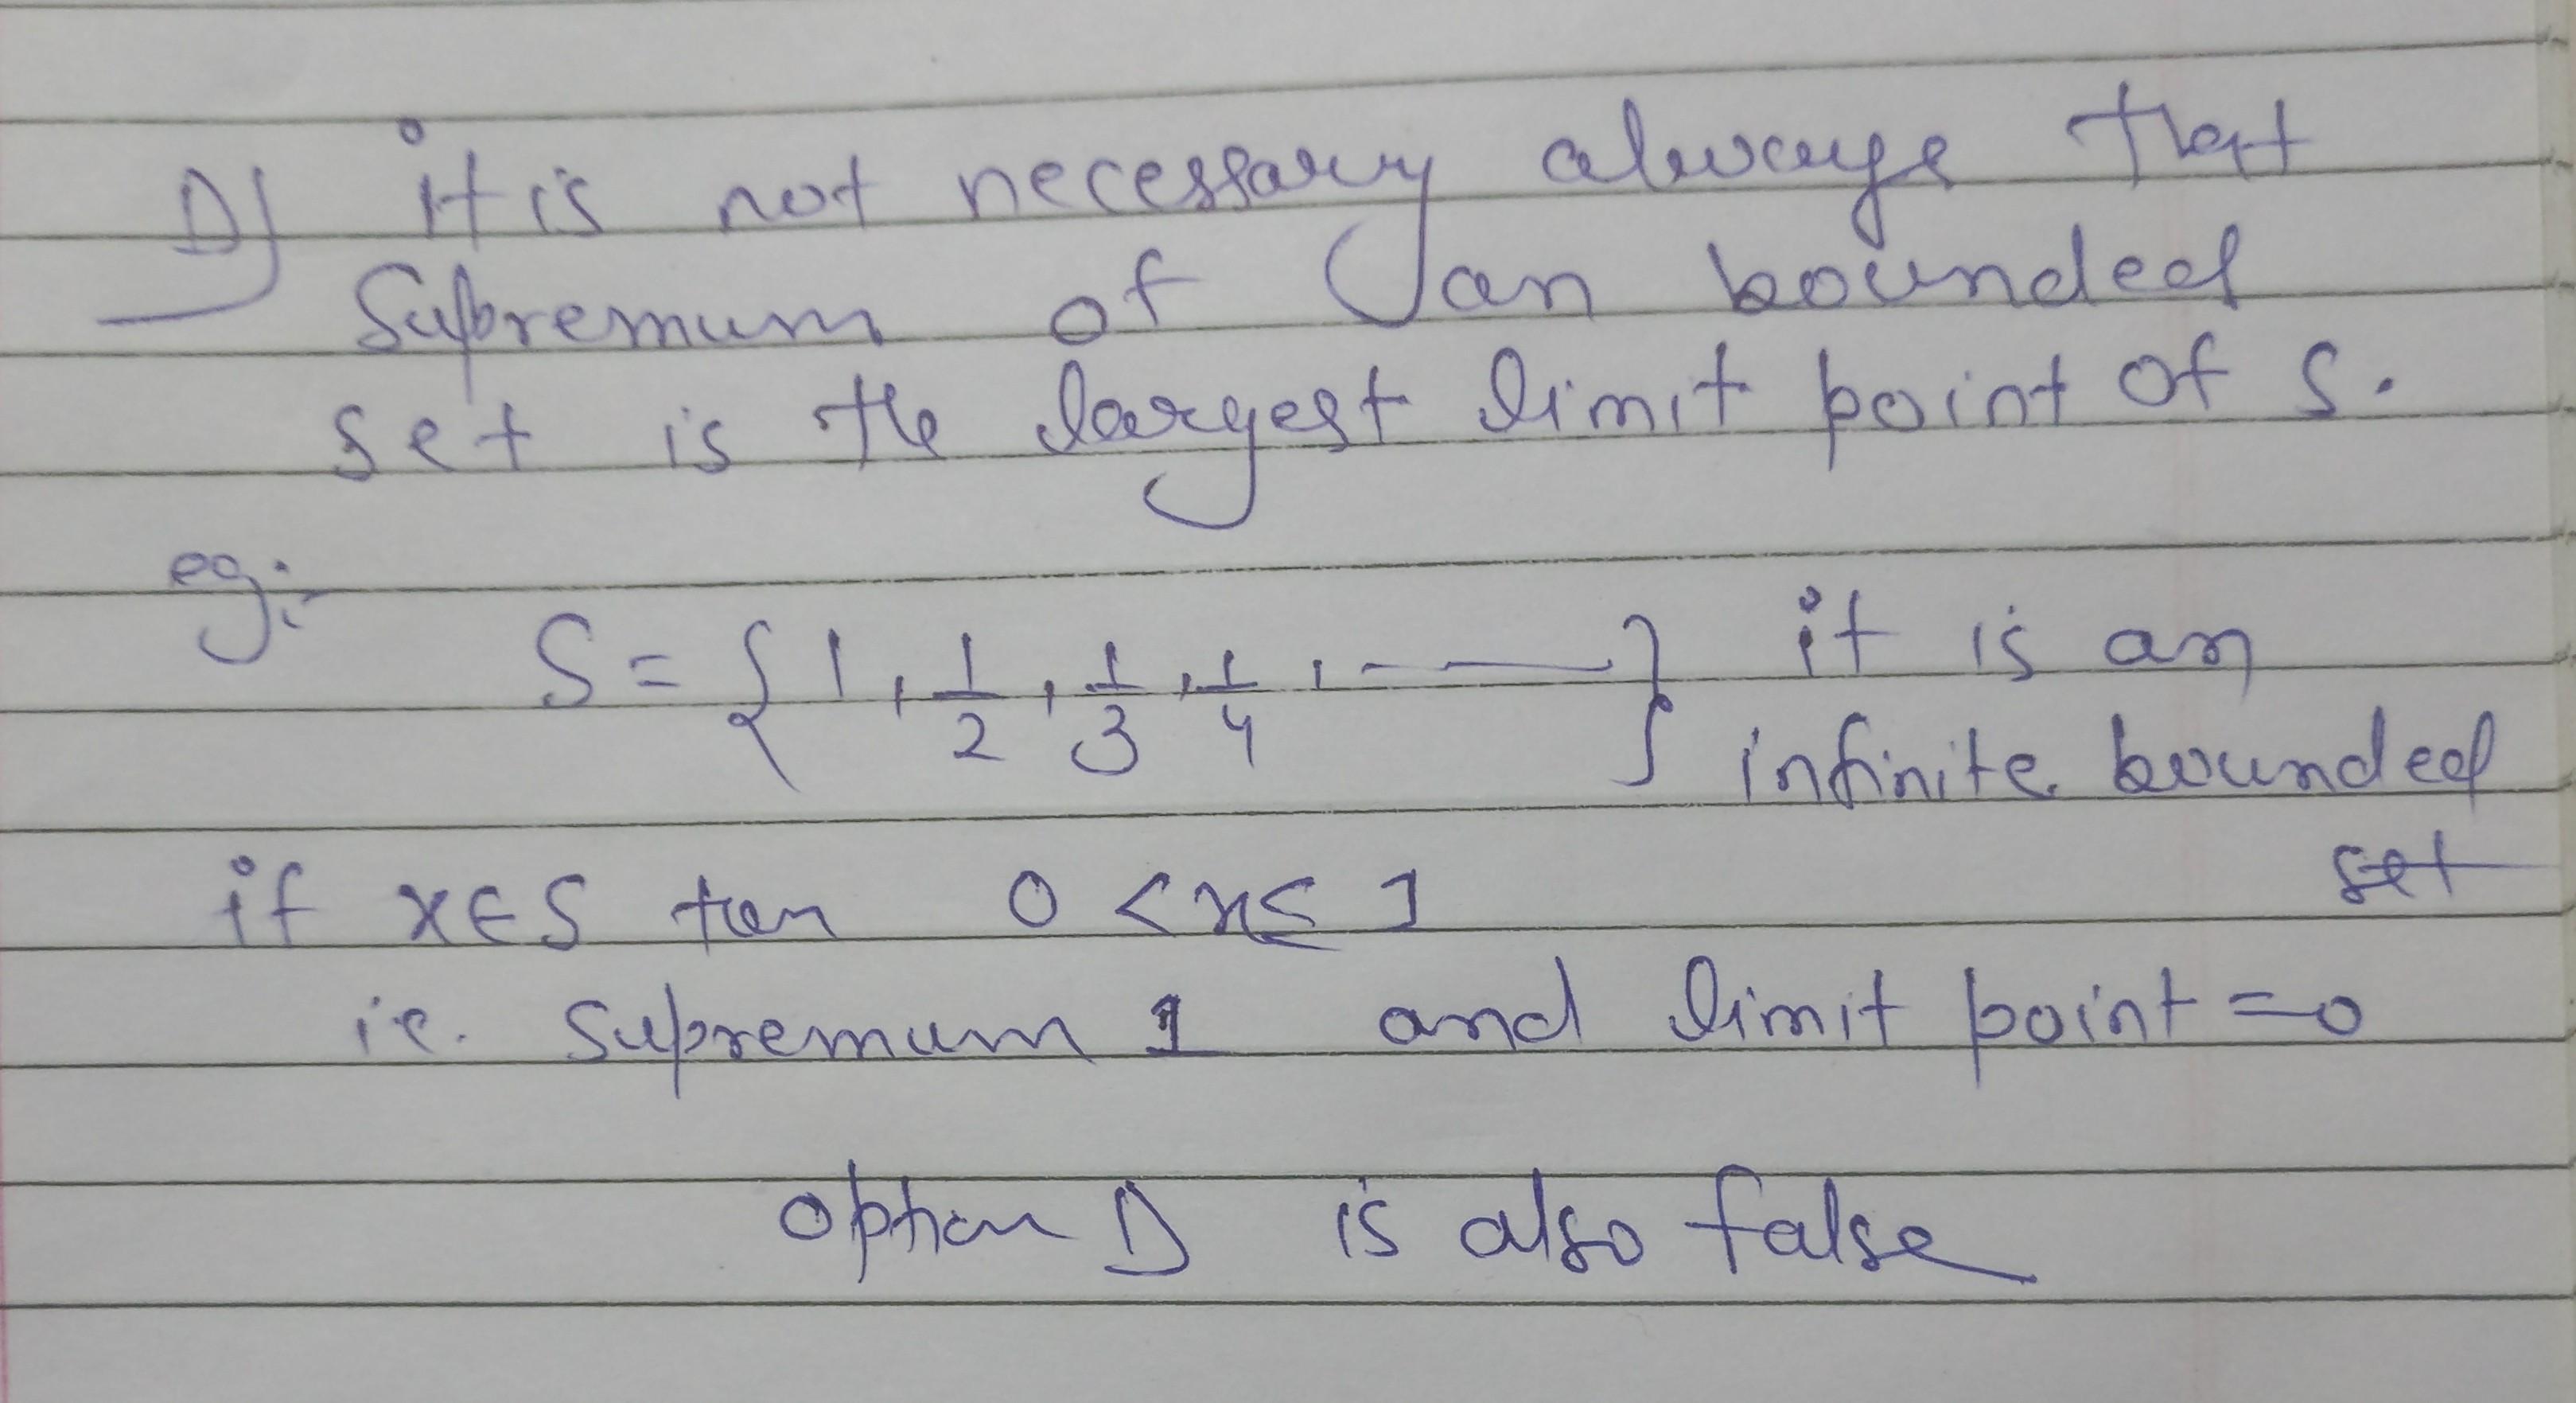 D) it is not necessary always that
Supremum of an bounded
set is the largest limit point of S.
eg:-
S = { 1, 1/2, 1/3, 1/4, ---- } it is an
infinite bounded
set
if x∈S ten 0 < x ≤ 1
i.e. Supremum 1 and limit point = 0
option D is also false